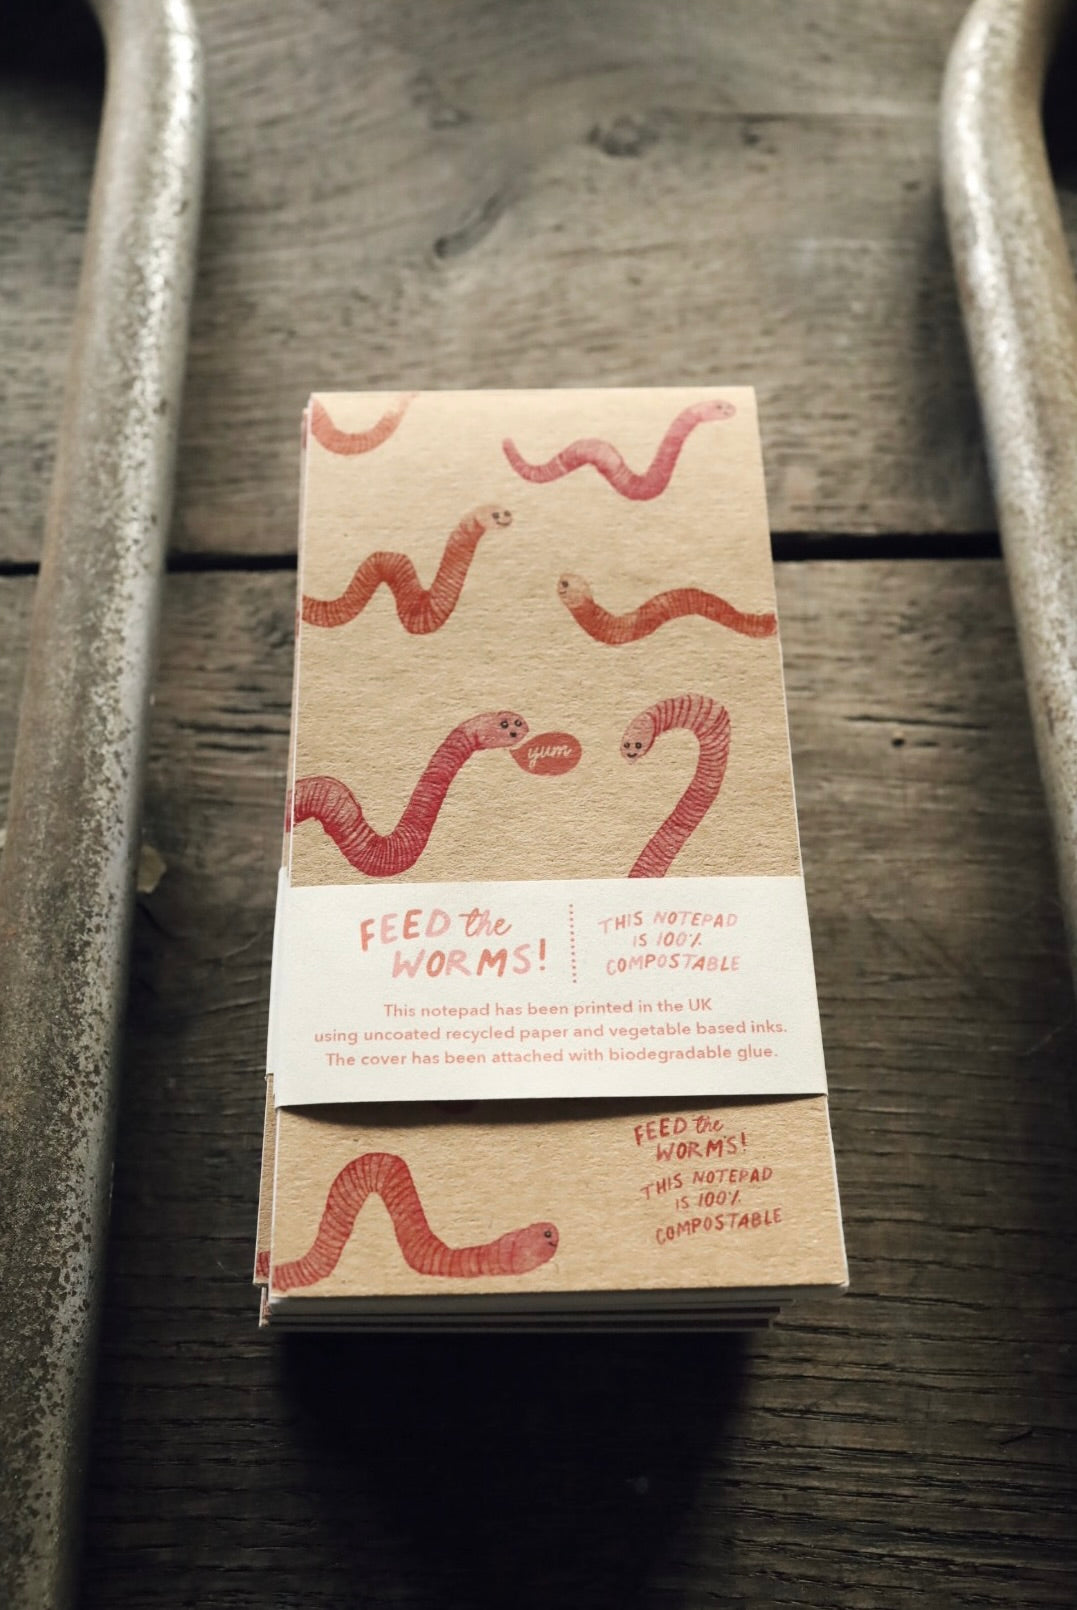 yum
FEED the
WORMS!
THIS NOTEPAD
IS 100%
COMPOSTABLE
This notepad has been printed in the UK
using uncoated recycled paper and vegetable based inks.
The cover has been attached with biodegradable glue.
FEED the
WORMS!
THIS NOTEPAD
IS 100%
COMPOSTABLE